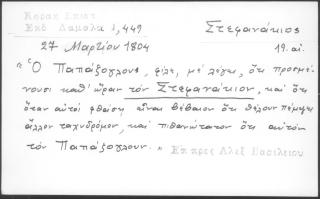 Κοραη Επιστ Στεφανάκιος
Εκδ Δαμαλα 1,449
27 Μαρτίου 1804 19. αἰ.
« Ὁ Παπάζογλους, φίλε, μὲ λέγει, ὅτι προσμέ-
νουσι καθ' ὥραν τὸν Στεφανάκιον, καὶ ὅτι
ὅταν αὐτοὶ φθάσῃ, εἶναι βέβαιον ὅτι θέλουν πέμψει
ἄλλον ταχυδρόμον, καὶ πιθανώτατον ὅτι αὐτὸν
τὸν Παπάζογλουν. » Επ προς Αλεξ Βασιλειου